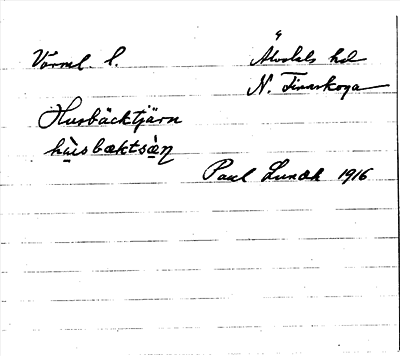 Värml. l.
Älvdals hd
N. Finnskoga
Husbäcktjärn
hùsbæktsæ̀ṇ
Paul Lundh 1916